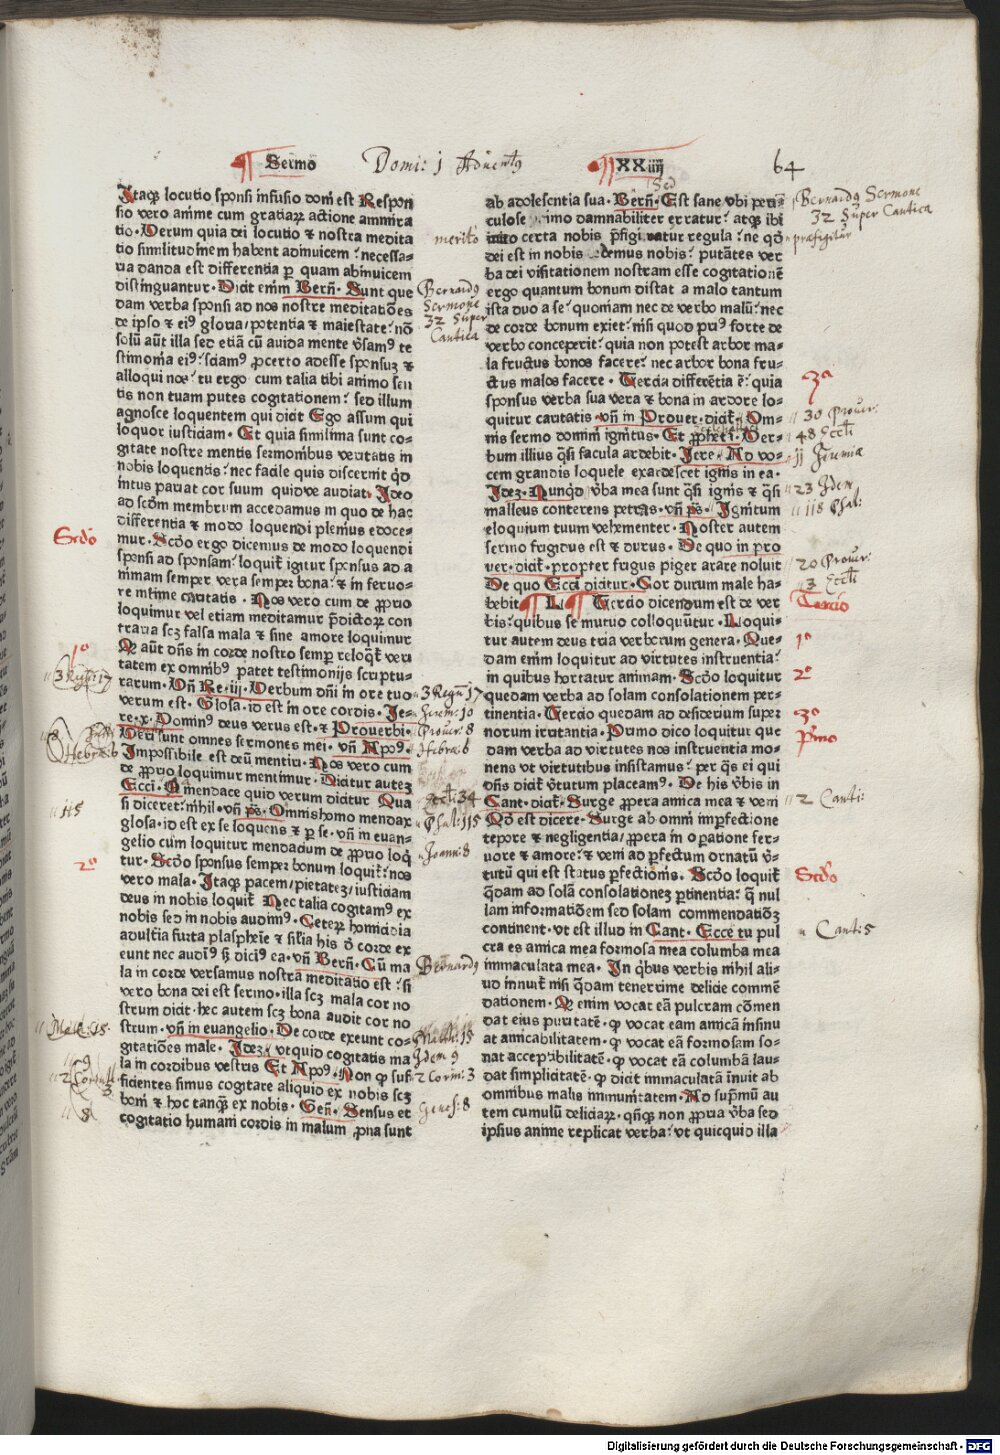 ¶ Sermo
Domi: 1 Aduentꝰ
¶ XXiiij
64
Itaqꝫ locutio sponsi infusio doni est Respon
sio vero anime cum gratiaꝝ actione ammira
tio. Verum quia dei locutio ⁊ nostra medita
tio similitudinem habent adinuicem: necessa-
ria danda est differentia ꝑ quam abinuicem
distinguantur. Dicit enim Berñ. Sunt que
dam verba sponsi ad nos nostre meditatiões
de ipso ⁊ eiꝰ gloria/potentia ⁊ maiestate: nõ
solũ aũt illa sed etiã cũ auida mente v̾samꝰ te
stimonia eiꝰ: sciamꝰ ꝓcerto adesse sponsuꝫ ⁊
alloqui nos: tu ergo cum talia tibi animo sen
tis non tuam putes cogitationem: sed illum
agnosce loquentem qui dicit Ego assum qui
loquor iusticiam. Et quia simillima sunt co-
gitate nostre mentis sermonibus veritatis in
nobis loquentis: nec facile quis discernit qd̃
intus pariat cor suum quidve audiat. Ideo
ad scd̃m membrum accedamus in quo de hac
differentia ⁊ modo loquendi plenius edoce-
mur. Scd̃o ergo dicemus de modo loquendi
sponsi ad sponsam: loquit̃ igitur sponsus ad a
nimam semper vera semper bona: ⁊ in feruo-
re intime caritatis. Nos vero cum de ꝓprio
loquimur vel etiam meditamur p̃dictorꝫ con
traria scꝫ falsa mala ⁊ sine amore loquimur
Ꝙ aũt dñs in corde nostro semꝑ reloqt̃ veri
tatem ex omnibꝰ patet testimonijs scriptu-
rarum. Vñ Re. iij. Verbum dñi in ore tuo
verum est. Glosa. id est in ore cordis. Je-
re. x. Dominꝰ deus verus est. ⁊ Prouerbi.
Veri sunt omnes sermones mei. vñ Apoꝰ.
Impossibile est deũ mentiri. Nos vero cum
de ꝓprio loquimur mentimur. Dicitur auteꝫ
Ecci. A mendace quid verum dicitur Qua
si diceret: nihil. vñ ps. Omnis homo mendax
glosa. id est ex se loquens ⁊ ꝑ se. vñ in euan-
gelio cum loquitur mendacium de ꝓprio loq̃
tur. Scd̃o sponsus semper bonum loquit̃: nos
vero mala. Itaqꝫ pacem/pietateꝫ/iusticiam
deus in nobis loquit̃ Nec talia cogitamꝰ ex
nobis sed in nobis audimꝰ. Ceteꝝ homicidia
adulteria furta plasphẽie ⁊ silia his ꝺ̾ corde ex
eunt nec audimꝰ sꝫ dicimꝰ ea. vñ Berñ. Cũ ma
la in corde versamus nostra meditatio est: si
vero bona dei est sermo. illa scꝫ mala cor no
strum dicit. hec autem scꝫ bona audit cor no
strum. vñ in euangelio. De corde exeunt co-
gitatiões male. Ideꝫ. vt quid cogitatis ma
la in cordibus vestris Et Apoꝰ. Non ꝙ suf-
ficientes simus cogitare aliquid ex nobis scꝫ
boni ⁊ hoc tanqꝫ ex nobis. Geñ. Sensus et
cogitatio humani cordis in malum ꝓna sunt
merito
Bernardꝰ
Sermone
32 Super
Cantica
Scd̃o
1º
3 Regũ 17
3 Regũ 17
Jerem: 10
Prouer: 8
Hebræ: 6
Hebræ: 6
Eccli: 34
115
Psal: 115
Joann: 8
2º
Bernardꝰ
Math: 15
Matth: 15
Idem 9
2 Corin: 3
Genes: 8
ab adolescentia sua. Berñ. Est sane vbi peri-
culose imo damnabiliter erratur: atqꝫ ibi
certa nobis p̃figinatur regula: ne qd̃
dei est in nobis demus nobis: putãtes ver
ba dei visitationem nostram esse cogitationẽ
ergo quantum bonum distat a malo tantum
ista duo a se: quoniam nec de verbo malũ: nec
de corde bonum exiet: nisi quod priꝰ forte de
verbo conceperit: quia non potest arbor ma-
la fructus bonos facere: nec arbor bona fru-
ctus malos facere. Tercia differẽtia ẽ: quia
sponsus verba sua vera ⁊ bona in ardore lo-
quitur caritatis vñ in Prouer. dicit̃. Om-
nis sermo domini ignitus. Et ꝓpheti. Ver-
bum illius qsi facula ardebit. Jere. Ad vo-
cem grandis loquele exardescet ignis in ea.
Ideꝫ. Nunqd̃ v̾ba mea sunt qsi ignis ⁊ qsi
malleus conterens petras. vñ ps. Ignitum
eloquium tuum vehementer. Noster autem
sermo frigidus est ⁊ durus. De quo in pro
uer. dicit̃. propter frigus piger arare noluit
De quo Ecci dicitur. Cor durum male ha-
bebit ¶ ¶ Tercio dicendum est de ver
bis: quibus se mutuo colloquũtur. Loqui-
tur autem deus tria verborum genera. Que-
dam enim loquitur ad virtutes instruentia:
in quibus hortatur animam. Scd̃o loquitur
quedam verba ad solam consolationem per-
tinentia. Tercio quedam ad desiderium super
norum irritantia. Primo dico loquitur que
dam verba ad virtutes nos instruentia mo-
nens vt virtutibus insistamus: per qs ei qui
dñs dicit̃ v̾tutum placeamꝰ. De his v̾bis in
Cant. dicit̃. Surge ꝓpera amica mea ⁊ veni
Qd̃ est dicere. Surge ab omni imperfectione
tepore ⁊ negligentia/ ꝓpera in oꝑatione fer-
uore ⁊ amore: ⁊ veni ad ꝑfectum ornatũ v̾-
tutũ qui est status ꝑfectionis. Scd̃o loquit̃
qdam ad solã consolationeꝫ ꝑtinentia: q̃ nul
lam informatiõem sed solam commendatiõꝫ
continent. vt est illud in Cant. Ecce tu pul
cra es amica mea formosa mea columba mea
immaculata mea. In qbus verbis nihil ali-
ud innuit̃ nisi qdam tenerrime delicie commẽ
dationem. Ꝙ enim vocat eã pulcram cõmen
dat eius puritatẽ. ꝙ vocat eam amicã insinu
at amicabilitatem. ꝙ vocat eã formosam so-
nat acceptabilitatẽ. ꝙ vocat eã columbã lau-
dat simplicitatẽ. ꝙ dicit immaculatã inuit ab
omnibus malis immunitatem. Ad supmũ au
tem cumulũ deliciaꝝ. qñqꝫ non ꝓpria v̾ba sed
ipsius anime replicat verba: vt quicquid illa
Sed
Bernardꝰ Sermone
32 Super Cantica
præfigitur
3ª
30 Prouer:
48 Eccli
11 Jeremiæ
23 Idem
118 Psal:
20 Prouer:
3 Eccli
Tercio
1º
2º
3º
Pm̃o
2 Canti:
Scd̃o
Cant: 5
Digitalisierung gefördert durch die Deutsche Forschungsgemeinschaft - DFG